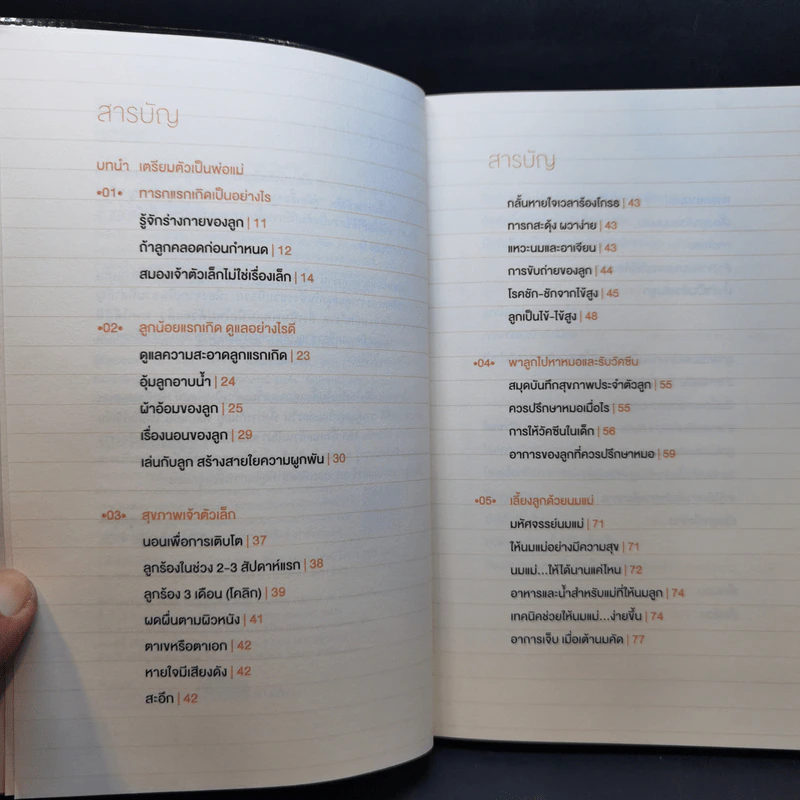 สารบัญ
บทนำ เตรียมตัวเป็นพ่อแม่
•01• ทารกแรกเกิดเป็นอย่างไร
รู้จักร่างกายของลูก | 11
ถ้าลูกคลอดก่อนกำหนด | 12
สมองเจ้าตัวเล็กไม่ใช่เรื่องเล็ก | 14
•02• ลูกน้อยแรกเกิด ดูแลอย่างไรดี
ดูแลความสะอาดลูกแรกเกิด | 23
อุ้มลูกอาบน้ำ | 24
ผ้าอ้อมของลูก | 25
เรื่องนอนของลูก | 29
เล่นกับลูก สร้างสายใยความผูกพัน | 30
•03• สุขภาพเจ้าตัวเล็ก
นอนเพื่อการเติบโต | 37
ลูกร้องในช่วง 2-3 สัปดาห์แรก | 38
ลูกร้อง 3 เดือน (โคลิก) | 39
ผดผื่นตามผิวหนัง | 41
ตาเขหรือตาเอก | 42
หายใจมีเสียงดัง | 42
สะอึก | 42
สารบัญ
กลั้นหายใจเวลาร้องโกรธ | 43
ทารกสะดุ้ง ผวาง่าย | 43
แหวะนมและอาเจียน | 43
การขับถ่ายของลูก | 44
โรคชัก-ชักจากไข้สูง | 45
ลูกเป็นไข้-ไข้สูง | 48
•04• พาลูกไปหาหมอและรับวัคซีน
สมุดบันทึกสุขภาพประจำตัวลูก | 55
ควรปรึกษาหมอเมื่อไร | 55
การให้วัคซีนในเด็ก | 56
อาการของลูกที่ควรปรึกษาหมอ | 59
•05• เลี้ยงลูกด้วยนมแม่
มหัศจรรย์นมแม่ | 71
ให้นมแม่อย่างมีความสุข | 71
นมแม่...ให้ได้นานแค่ไหน | 72
อาหารและน้ำสำหรับแม่ที่ให้นมลูก | 74
เทคนิคช่วยให้นมแม่...ง่ายขึ้น | 74
อาการเจ็บ เมื่อเต้านมคัด | 77